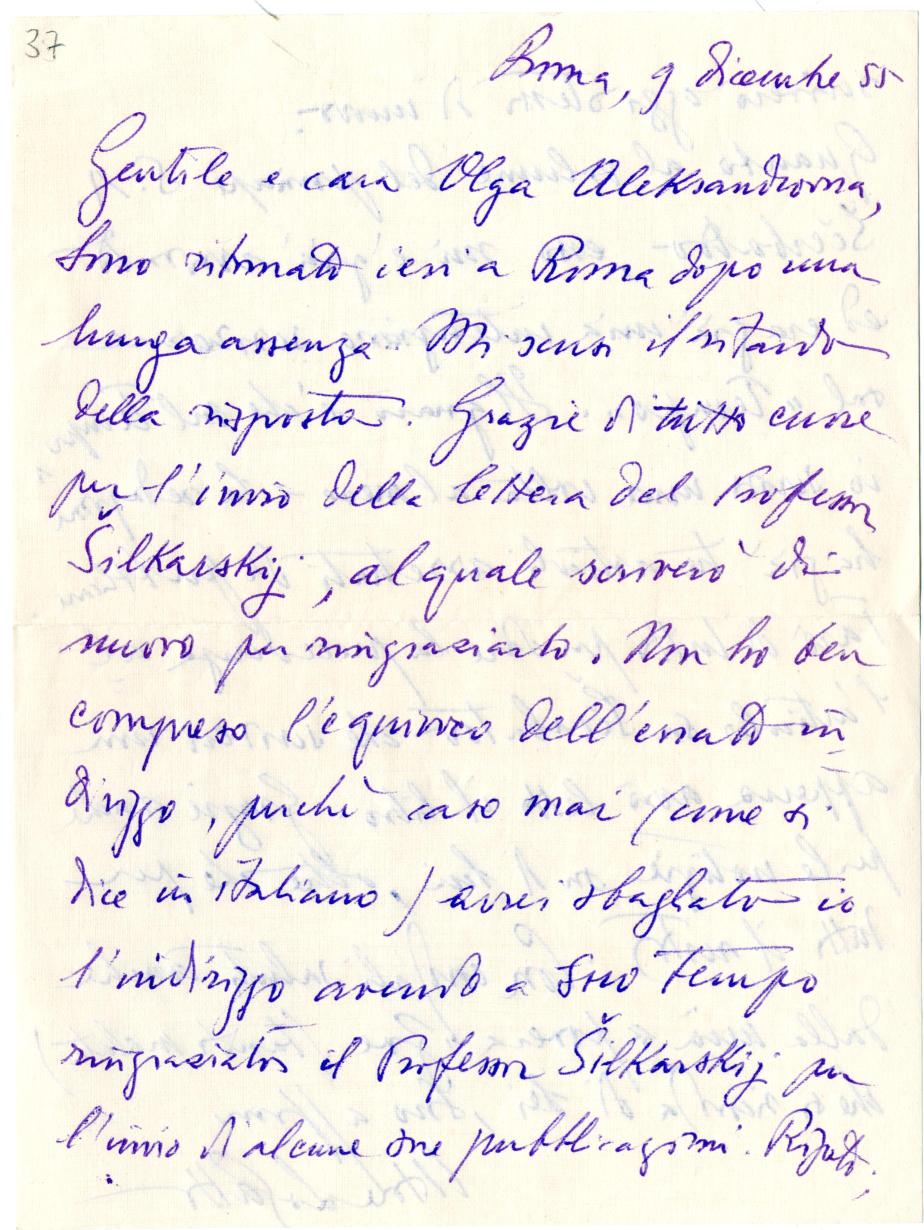 37
Roma, 9 dicembre 55
Gentile e cara Olga Aleksandrovna,
Sono ritornato ieri a Roma dopo una
lunga assenza. Mi scusi il ritardo
della risposta. Grazie di tutto cuore
per l'invio della lettera del Professor
Šilkarskij, al quale scriverò di
nuovo per ringraziarlo. Non ho ben
compreso l'equivoco dell'errato in
dirizzo, perchè caso mai (come si
dice in italiano) avrei sbagliato io
l'indirizzo avendo a suo tempo
ringraziato il Professor Šilkarskij per
l'invio di alcune sue pubblicazioni. Ripeto,